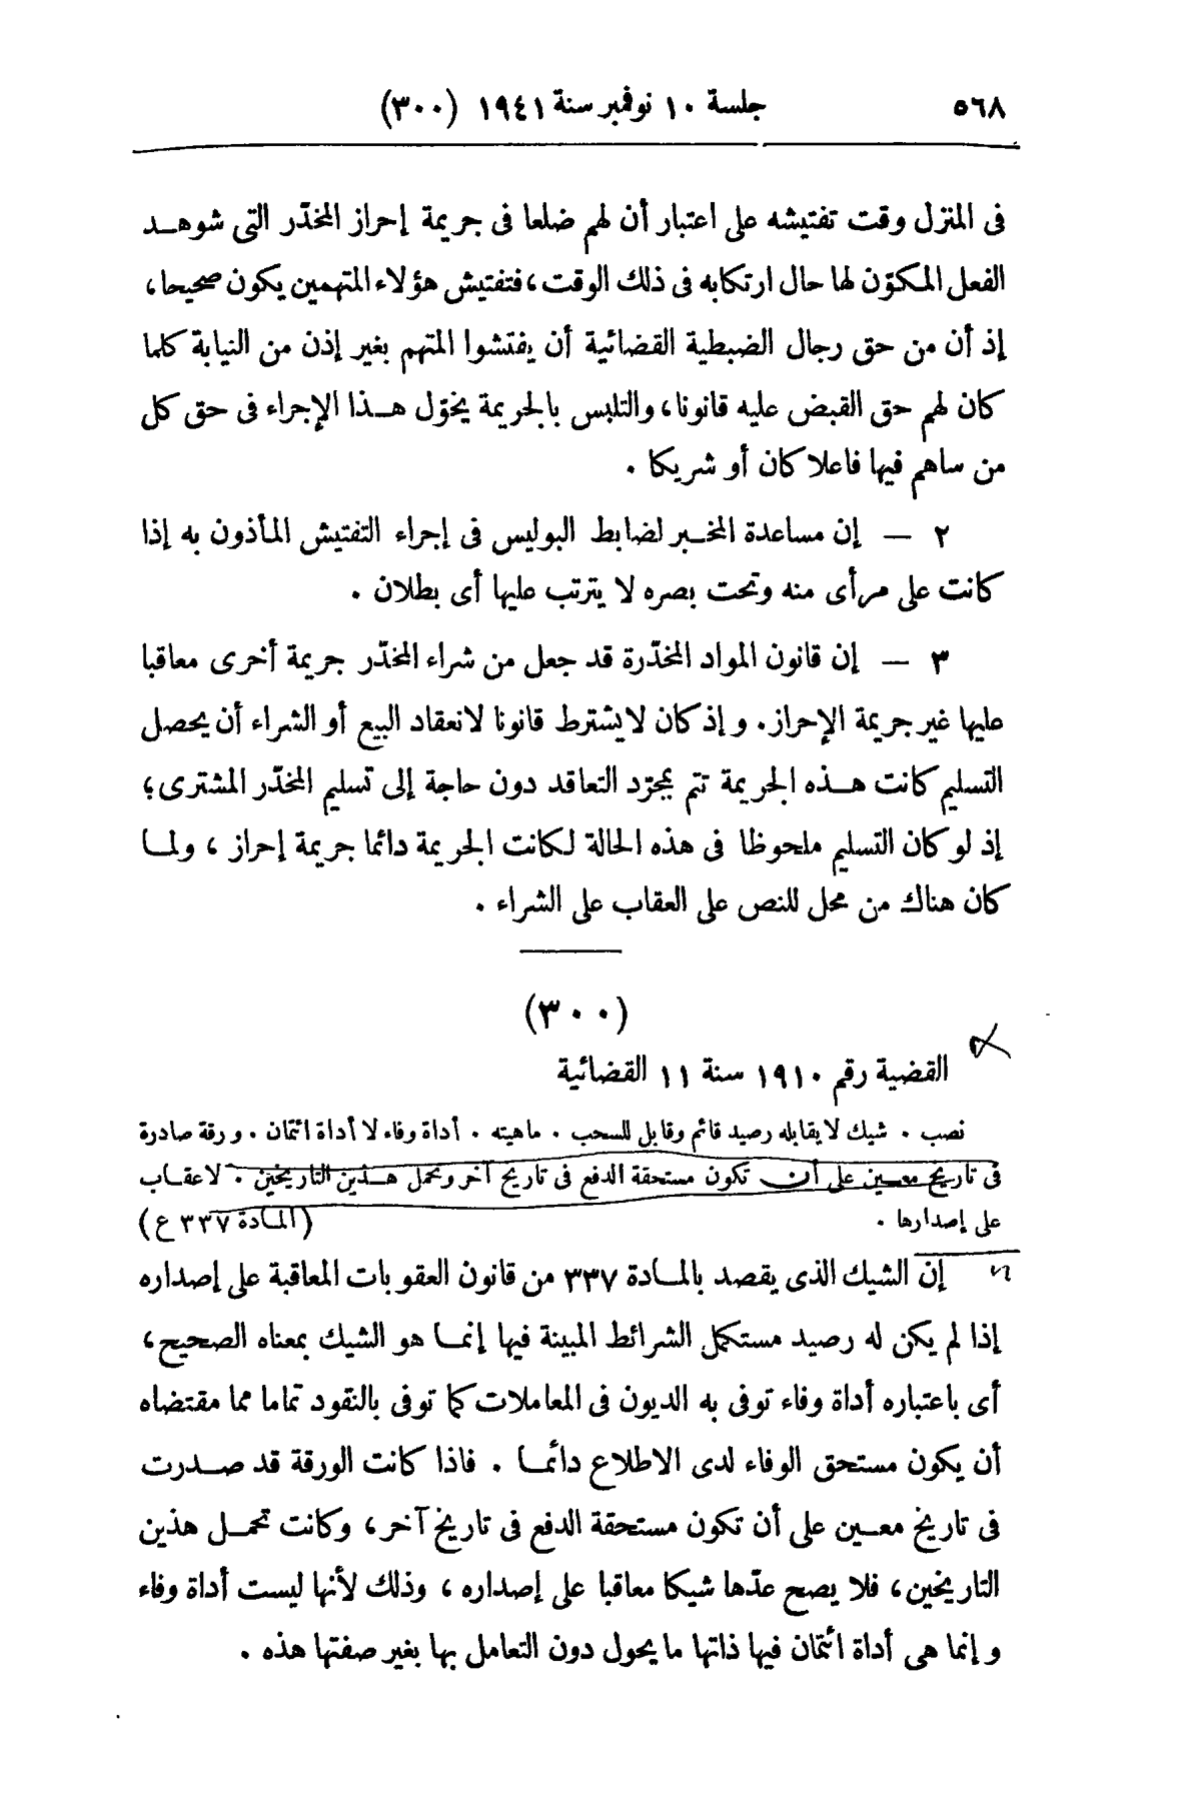 ٥٦٨ جلسة ١٠ نوفمبر سنة ١٩٤١ (٣٠٠)
فى المنزل وقت تفتيشه على اعتبار أن لهم ضلعا فى جريمة إحراز المخدّر التى شوهد
الفعل المكوّن لها حال ارتكابه فى ذلك الوقت، فتفتيش هؤلاء المتهمين يكون صحيحا،
إذ أن من حق رجال الضبطية القضائية أن يفتشوا المتهم بغير إذن من النيابة كلما
كان لهم حق القبض عليه قانونا، والتلبس بالجريمة يخوّل هذا الإجراء فى حق كل
من ساهم فيها فاعلا كان أو شريكا .
٢ — إن مساعدة المخبر لضابط البوليس فى إجراء التفتيش المأذون به إذا
كانت على مرأى منه وتحت بصره لا يترتب عليها أى بطلان .
٣ — إن قانون المواد المخدّرة قد جعل من شراء المخدّر جريمة أخرى معاقبا
عليها غير جريمة الإحراز. وإذ كان لا يشترط قانونا لانعقاد البيع أو الشراء أن يحصل
التسليم كانت هذه الجريمة تتم بمجرّد التعاقد دون حاجة إلى تسليم المخدّر المشترى؛
إذ لو كان التسليم ملحوظا فى هذه الحالة لكانت الجريمة دائما جريمة إحراز ، ولما
كان هناك من محل للنص على العقاب على الشراء .
(٣٠٠)
القضية رقم ١٩١٠ سنة ١١ القضائية
نصب . شيك لا يقابله رصيد قائم وقابل للسحب . ماهيته . أداة وفاء لا أداة ائتمان . ورقة صادرة
فى تاريخ معين على أن تكون مستحقة الدفع فى تاريخ آخر وتحمل هذين التاريخين . لا عقاب
على إصدارها . (المادة ٣٣٧ ع)
إن الشيك الذى يقصد بالمادة ٣٣٧ من قانون العقوبات المعاقبة على إصداره
إذا لم يكن له رصيد مستكمل الشرائط المبينة فيها إنما هو الشيك بمعناه الصحيح،
أى باعتباره أداة وفاء توفى به الديون فى المعاملات كما توفى بالنقود تماما مما مقتضاه
أن يكون مستحق الوفاء لدى الاطلاع دائما . فاذا كانت الورقة قد صدرت
فى تاريخ معين على أن تكون مستحقة الدفع فى تاريخ آخر، وكانت تحمل هذين
التاريخين، فلا يصح عدّها شيكا معاقبا على إصداره ، وذلك لأنها ليست أداة وفاء
وإنما هى أداة ائتمان فيها ذاتها ما يحول دون التعامل بها بغير صفتها هذه .